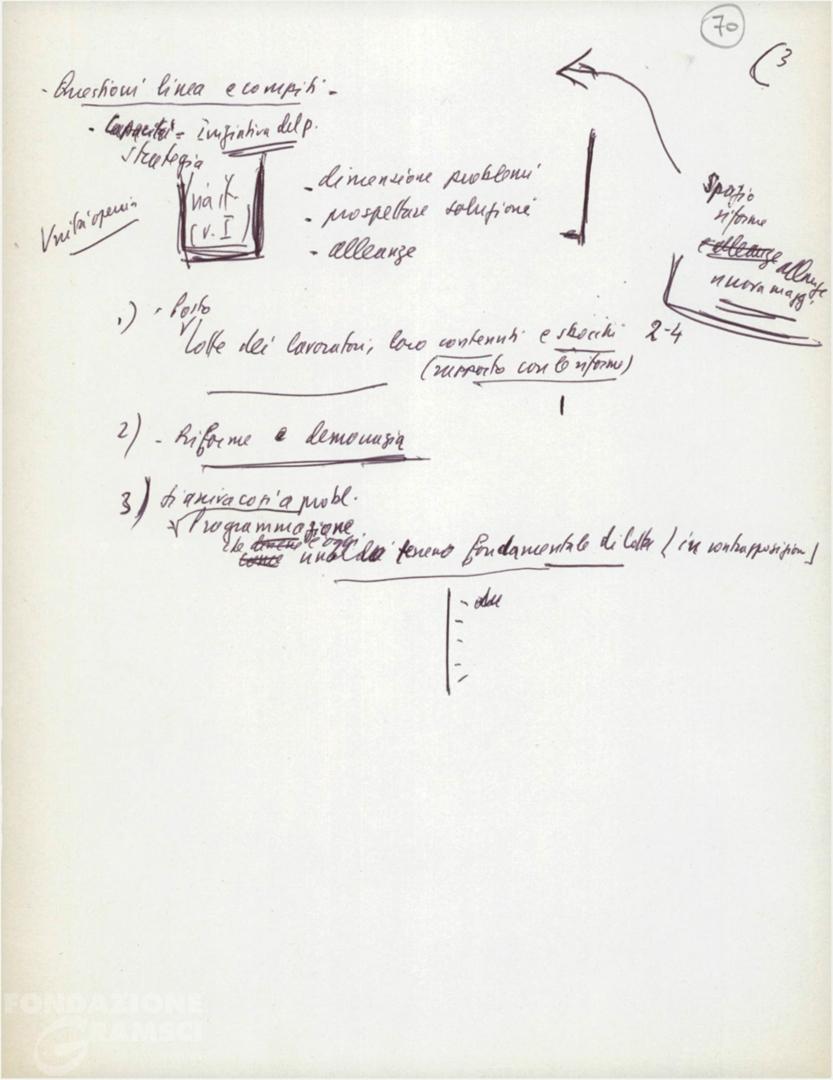 70
(3
- Questioni linea e compiti -
- Capacità = Iniziativa del p.
strategia
Unità operaia
Via it.
(v. I)
- dimensione problemi
- prospettare soluzioni
- alleanze
Spazio
riforme
alleanze
nuova magg.
1) - Posto
lotte dei lavoratori, loro contenuti e sbocchi 2-4
(rapporto con le riforme)
1
2) - Riforme e democrazia
3) si arriva così a probl.
Programmazione
che è oggi
terreno fondamentale di lotta (in contrapposizione)
FONDAZIONE
GRAMSCI